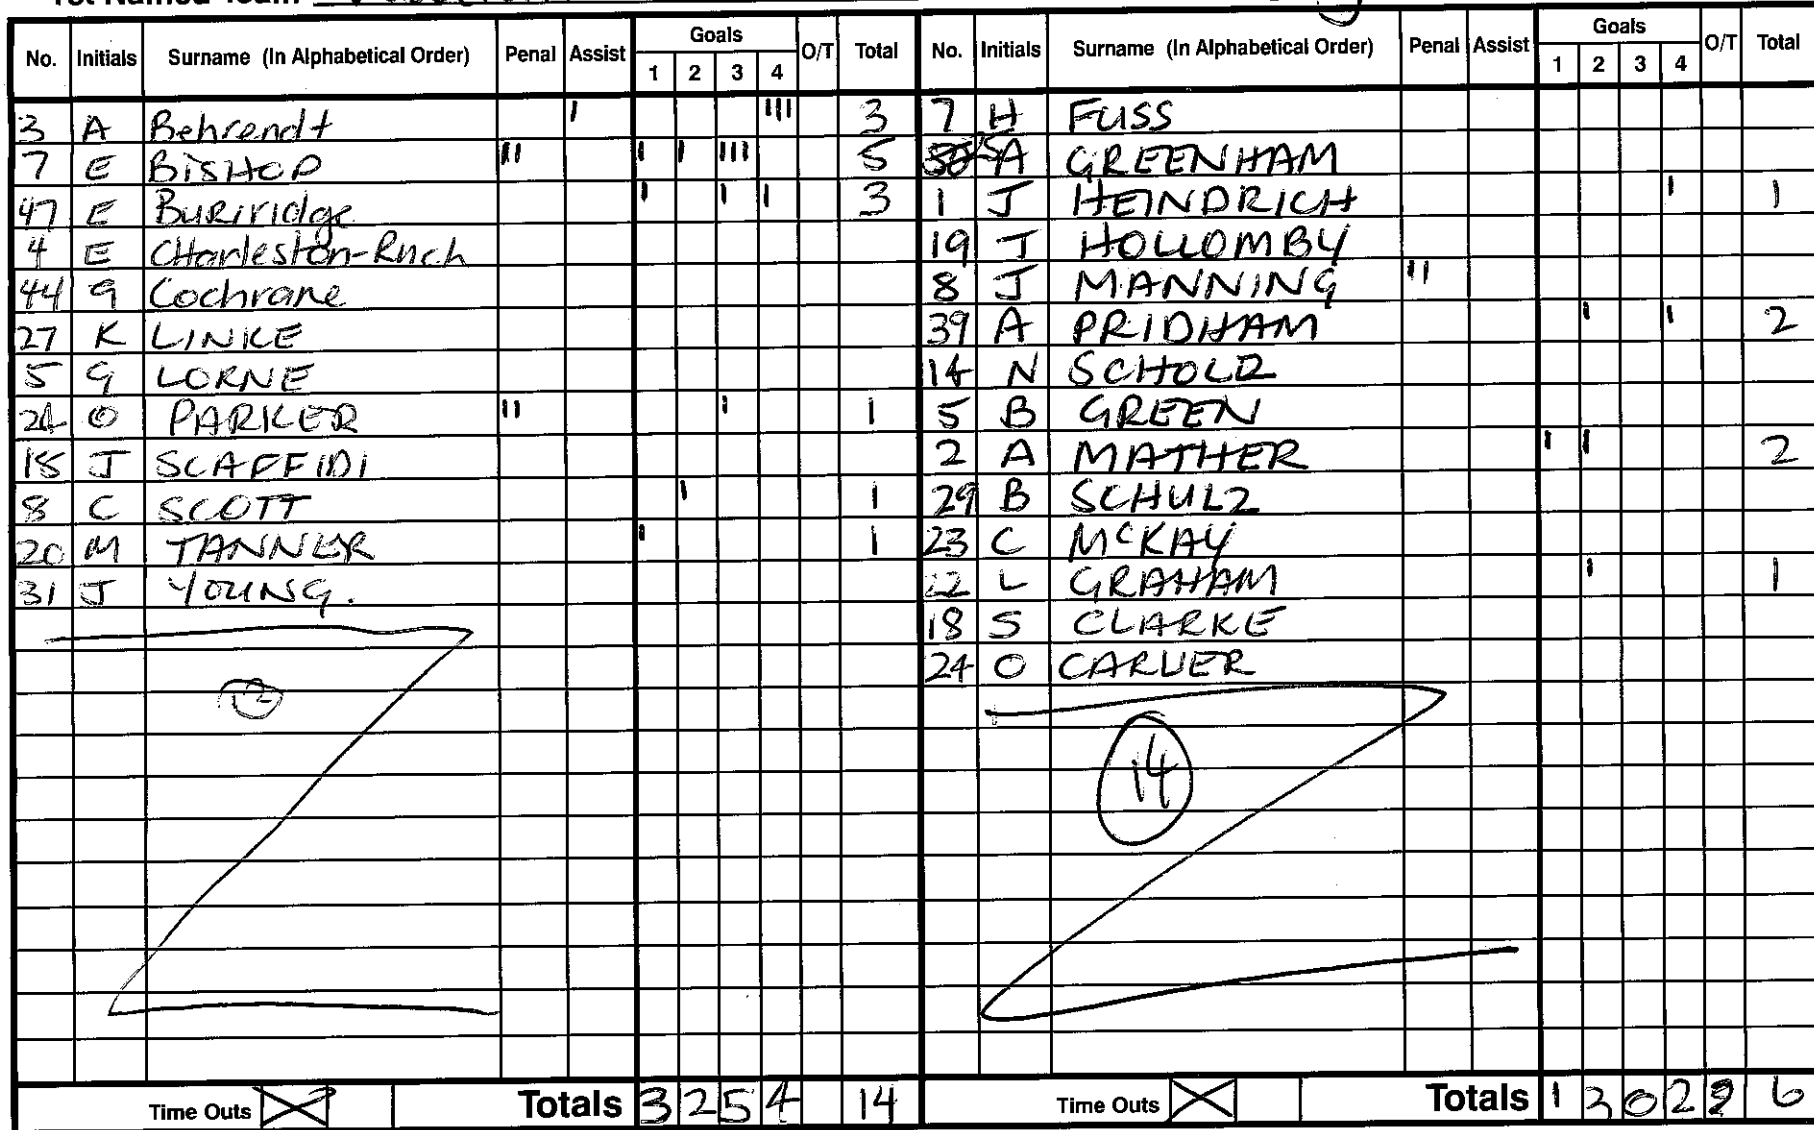 1st Named Team
No. Initials Surname (In Alphabetical Order) Penal Assist Goals 1 2 3 4 O/T Total
3 A Behrendt I III 3
7 E BISHOP II I I III 5
47 E Burrridge I I I 3
4 E CHarleston-Rnch
44 G Cochrane
27 K LINKE
5 G LORNE
24 O PARKER II I 1
18 J SCAFFIDI
8 C SCOTT I 1
20 M TANNER I 1
31 J YOUNG.
12
Time Outs Totals 3 2 5 4 14
No. Initials Surname (In Alphabetical Order) Penal Assist Goals 1 2 3 4 O/T Total
7 H FUSS
A GREENHAM
1 J HEINDRICH I 1
19 J HOLLOMBY
8 J MANNING II
39 A PRIDHAM I I 2
14 N SCHOLZ
5 B GREEN
2 A MATHER I I 2
29 B SCHULZ
23 C McKAY
22 L GRAHAM I 1
18 S CLARKE
24 O CARVER
14
Time Outs Totals 1 3 0 2 6